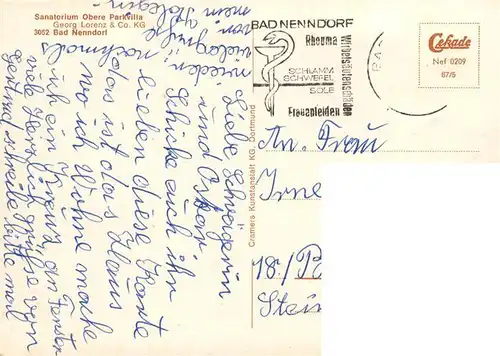 Sanatorium Obere Parkvilla
Georg Lorenz & Co. KG
3052 Bad Nenndorf
BAD NENNDORF
Rheuma
Wirbelsäulenschäden
SCHLAMM
SCHWEFEL
SOLE
Frauenleiden
Cekade
Nef 0209
67/5
Cramers Kunstanstalt KG, Dortmund
Liebe Schwägerin
und Oskar,
Schicke euch ihn
lieben diese Karte
das ist das Haus
wo ich Wohne mache
ich ein Kreuz, an Fenster
viele Herzlich grüsse von
Gertrud schreibe bitte mal
wieder, nochmals
mein
An. Frau
Irne
18./P
Stei